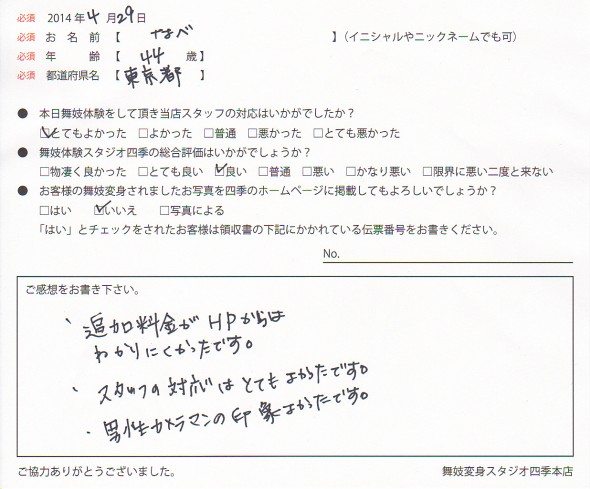 必須 2014年4月29日
必須 お名前【 やなべ 】（イニシャルやニックネームでも可）
必須 年齢【 44 歳】
必須 都道府県名【東京都】
● 本日舞妓体験をして頂き当店スタッフの対応はいかがでしたか？
☑とてもよかった □よかった □普通 □悪かった □とても悪かった
● 舞妓体験スタジオ四季の総合評価はいかがでしょうか？
□物凄く良かった □とても良い ☑良い □普通 □悪い □かなり悪い □限界に悪い二度と来ない
● お客様の舞妓変身されましたお写真を四季のホームページに掲載してもよろしいでしょうか？
□はい ☑いいえ □写真による
「はい」とチェックをされたお客様は領収書の下記にかかれている伝票番号をお書きください。
No.
ご感想をお書き下さい。
、追加料金がHPからは
わかりにくかったです。
、スタッフの対応はとてもよかったです。
・男性カメラマンの印象よかったです。
ご協力ありがとうございました。
舞妓変身スタジオ四季本店